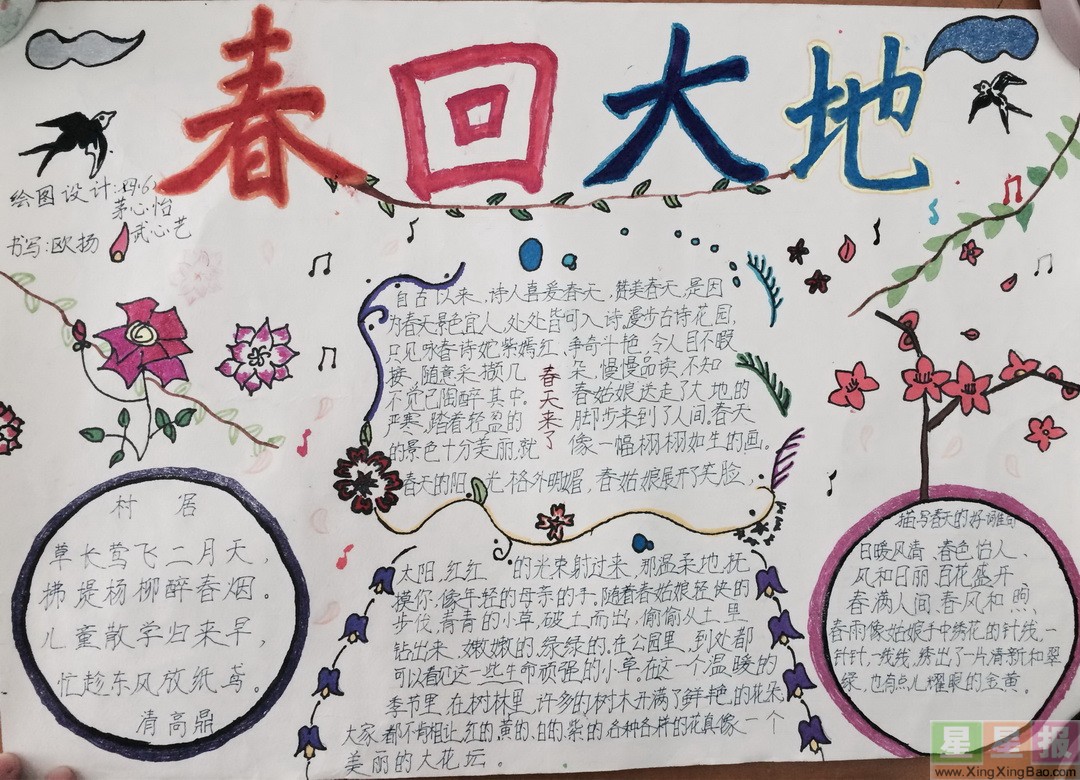 春回大地
绘图设计:四.6.
茅心怡
武心艺
书写:欧扬
自古以来,诗人喜爱春天,赞美春天,是因
为春天景色宜人,处处皆可入诗,漫步古诗花园,
只见咏春诗姹紫嫣红、争奇斗艳,令人目不暇
接,随意采撷几朵,慢慢品读,不知
不觉已陶醉其中。春姑娘送走了大地的
严寒,踏着轻盈的脚步来到了人间。春天
的景色十分美丽,就像一幅栩栩如生的画。
春天来了
春天的阳光格外明媚,春姑娘展开了笑脸,
太阳,红红的光束射过来,那温柔地抚
摸你,像年轻的母亲的手。随着春姑娘轻快的
步伐,青青的小草破土而出,偷偷从土里
钻出来、嫩嫩的,绿绿的,在公园里,到处都
可以看见这一些生命顽强的小草。在这一个温暖的
季节里,在树林里,许多的树木开满了鲜艳的花朵
大家都不肯相让,红的、黄的、白的、紫的,各种各样的花真像一个
美丽的大花坛。
村居
草长莺飞二月天,
拂堤杨柳醉春烟。
儿童散学归来早,
忙趁东风放纸鸢。
清高鼎
描写春天的好词佳句
日暖风清、春色怡人、
风和日丽、百花盛开、
春满人间、春风和煦
春雨像姑娘手中绣花的针线,一
针针,一线线,绣出了一片清新和翠
绿,也有点儿耀眼的金黄。
星星报
www.XingXingBao.com